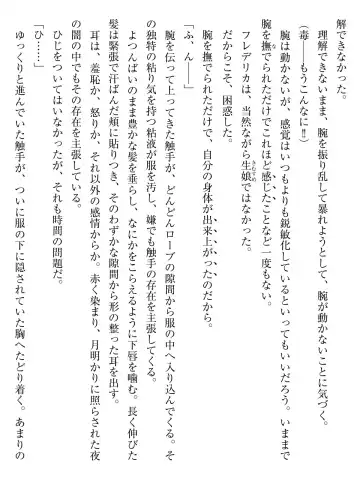 解できなかった。
理解できないまま、腕を振り乱して暴れようとして、腕が動かないことに気づく。
(毒――もうこんなに‼)
腕は動かないが、感覚はいつもよりも鋭敏化しているといってもいいだろう。いままで
腕を撫でられただけでこれほど感じたことなど一度もない。
フレデリカは、当然ながら生娘ではなかった。
だからこそ、困惑した。
腕を撫でられただけで、自分の身体が出来上がったのだから。
「ふ、ん――」
腕を伝って上ってきた触手が、どんどんローブの隙間から服の中へ入り込んでくる。そ
の独特の粘り気を持つ粘液が服を汚し、嫌でも触手の存在を主張してくる。
よつんばいのまま豊かな髪を垂らし、なにかをこらえるように下唇を噛む。長く伸びた
髪は緊張で汗ばんだ頬に貼りつき、そのわずかな隙間から形の整った耳を出す。
耳は、羞恥か、怒りか、それ以外の感情からか。赤く染まり、月明かりに照らされた夜
の闇の中でもその存在を主張している。
ひじをついてはいなかったが、それも時間の問題だ。
「ひ……」
ゆっくりと進んでいた触手が、ついに服の下に隠されていた胸へたどり着く。あまりの